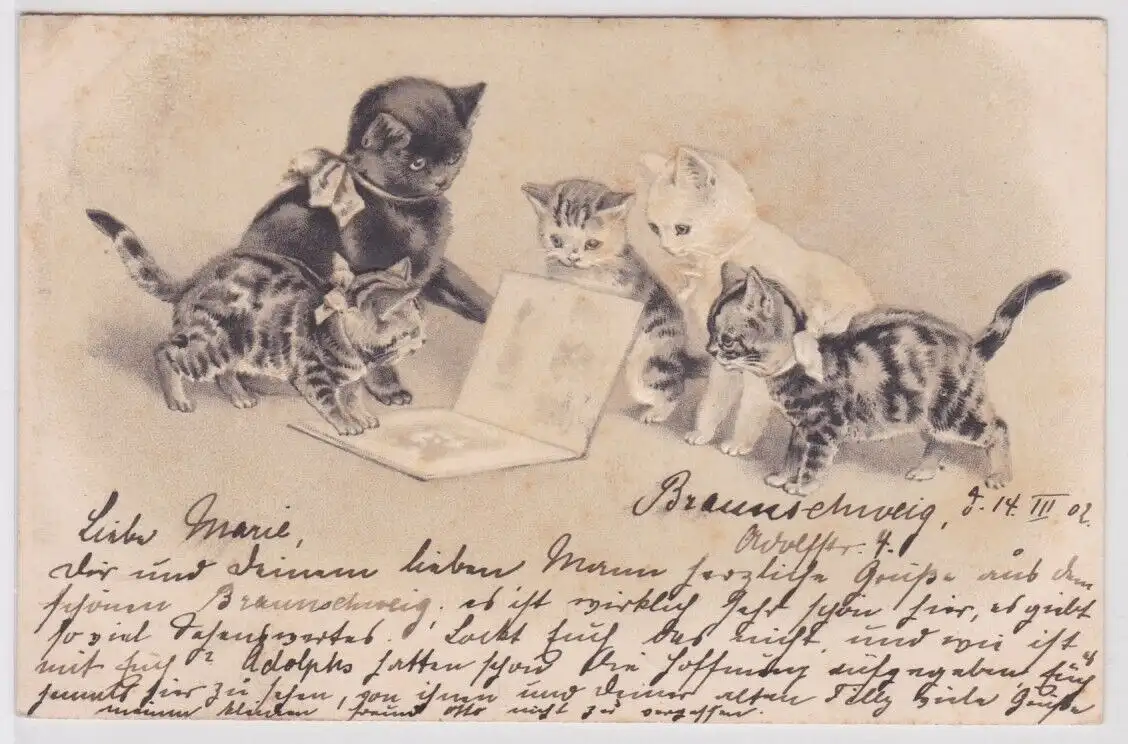 Braunschweig, d. 14. III 02.
Adolfstr. 4.
Liebe Marie,
Dir und Deinem lieben Mann herzliche Grüße aus dem
schönen Braunschweig, es ist wirklich sehr schön hier, es giebt
so viel Sehenswertes. Lockt Euch das nicht, und wie ist
mit Euch? Adolphs hatten schon die Hoffnung aufgegeben, Euch
jemals hier zu sehen, von ihnen und Deiner alten Tilly viele Grüße
meinen kleinen Freund Otto nicht zu vergessen.